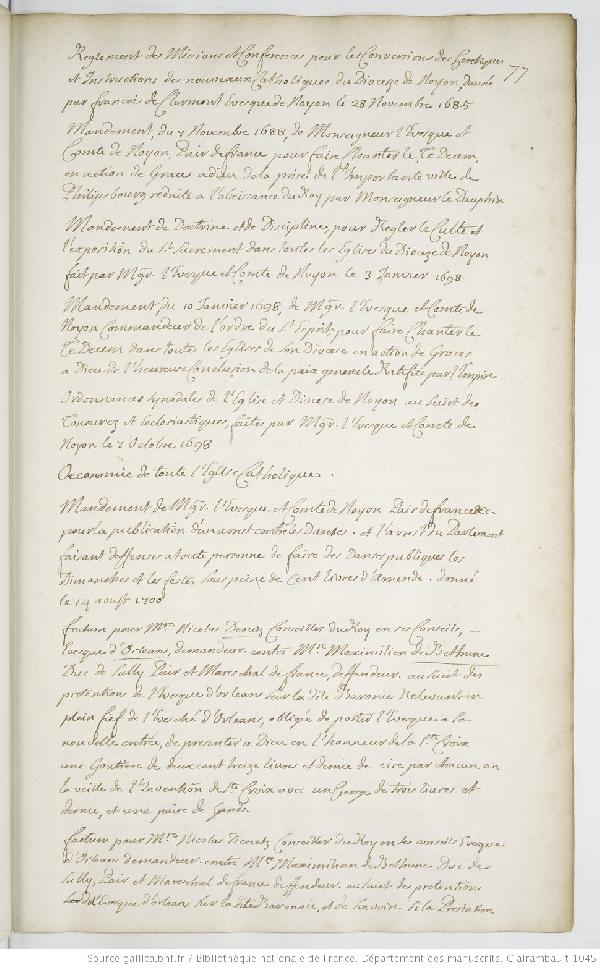 77
Reglement des Missions et Conferences pour les Conversions des heretiques
et Instructions des nouveaux Catholiques du Diocese de Noyon, donné
par francois de Clermont Evesque de Noyon le 28 Novembre 1685
Mandement, du 7 Novembre 1688, de Monseigneur l'Evesque et
Comte de Noyon, Pair de france pour faire Chanter le Te Deum,
en action de Graces a dieu de la prise de l'Importante ville de
Philipsbourg reduite a l'obeissance du Roy par Monseigneur le Dauphin
Mandement de Doctrine et de Discipline, pour Regler le Culte et
l'exposition du St. Sacrement dans toutes les Eglises du Diocese de Noyon
fait par Mgr. l'Evesque et Comte de Noyon le 3 Janvier 1698
Mandement du 10 Janvier 1698, de Mgr. l'Evesque et Comte de
Noyon Commandeur de l'ordre du St. Esprit pour faire Chanter le
Te Deum dans toutes les Eglises de son Diocese en action de Graces
a Dieu de l'heureuse Conclusion de la paix generale Ratifiée par l'Empire
Ordonnances synodales de l'Eglise et Diocese de Noyon au sujet des
Tonsurez et Ecclesiastiques, faites par Mgr. l'Evesque et Comte de
Noyon le 2 Octobre 1698
Oeconomie de toute l'Eglise Catholique.
Mandement de Mgr. l'Evesque et Comte de Noyon Pair de france &c
pour la publication d'un arrest contre les Danses. et l'arrest du Parlement
faisant deffenses a toute personne de faire des Danses publiques les
Dimanches et les festes sous peine de Cent livres d'amende. donné
le 14 aoust 1700
factum pour Mre. Nicolas Denetz Conseiller du Roy en ses Conseils,
Evesque d'Orleans, demandeur contre Mre. Maximilien de Bethune
Duc de Sully Pair et Mareschal de france, deffendeur. au sujet des
pretentions de l'Evesque d'orleans sur la dite Baronie Relevant en
plein fief de l'Evesché d'Orleans, obligée de porter l'Evesque a sa
nouvelle entrée, de presenter a Dieu en l'honneur de la Ste. Croix
une Goutiere de deux cent treize livres et demie de cire par chacun an
la veille de l'Invention de Ste. Croix avec un Cierge de trois livres et
demie, et une paire de Gands.
factum pour Mre. Nicolas Denetz Conseiller du Roy en ses conseils Evesque
d'Orleans demandeur contre Mre. Maximilien de Bethune Duc de
Sully, Pair et Mareschal de france deffendeur. au sujet des pretentions
dud. Evesque d'orleans sur la dite Baronnie, et de scavoir si la Prestation
Source gallica.bnf.fr / Bibliothèque nationale de France. Département des manuscrits. Clairambault 1045